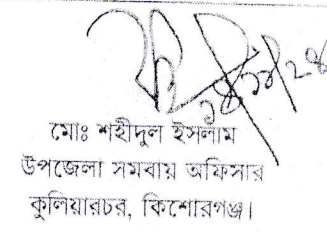 ১৪/১১/২৪
মোঃ শহীদুল ইসলাম
উপজেলা সমবায় অফিসার
কুলিয়ারচর, কিশোরগঞ্জ।